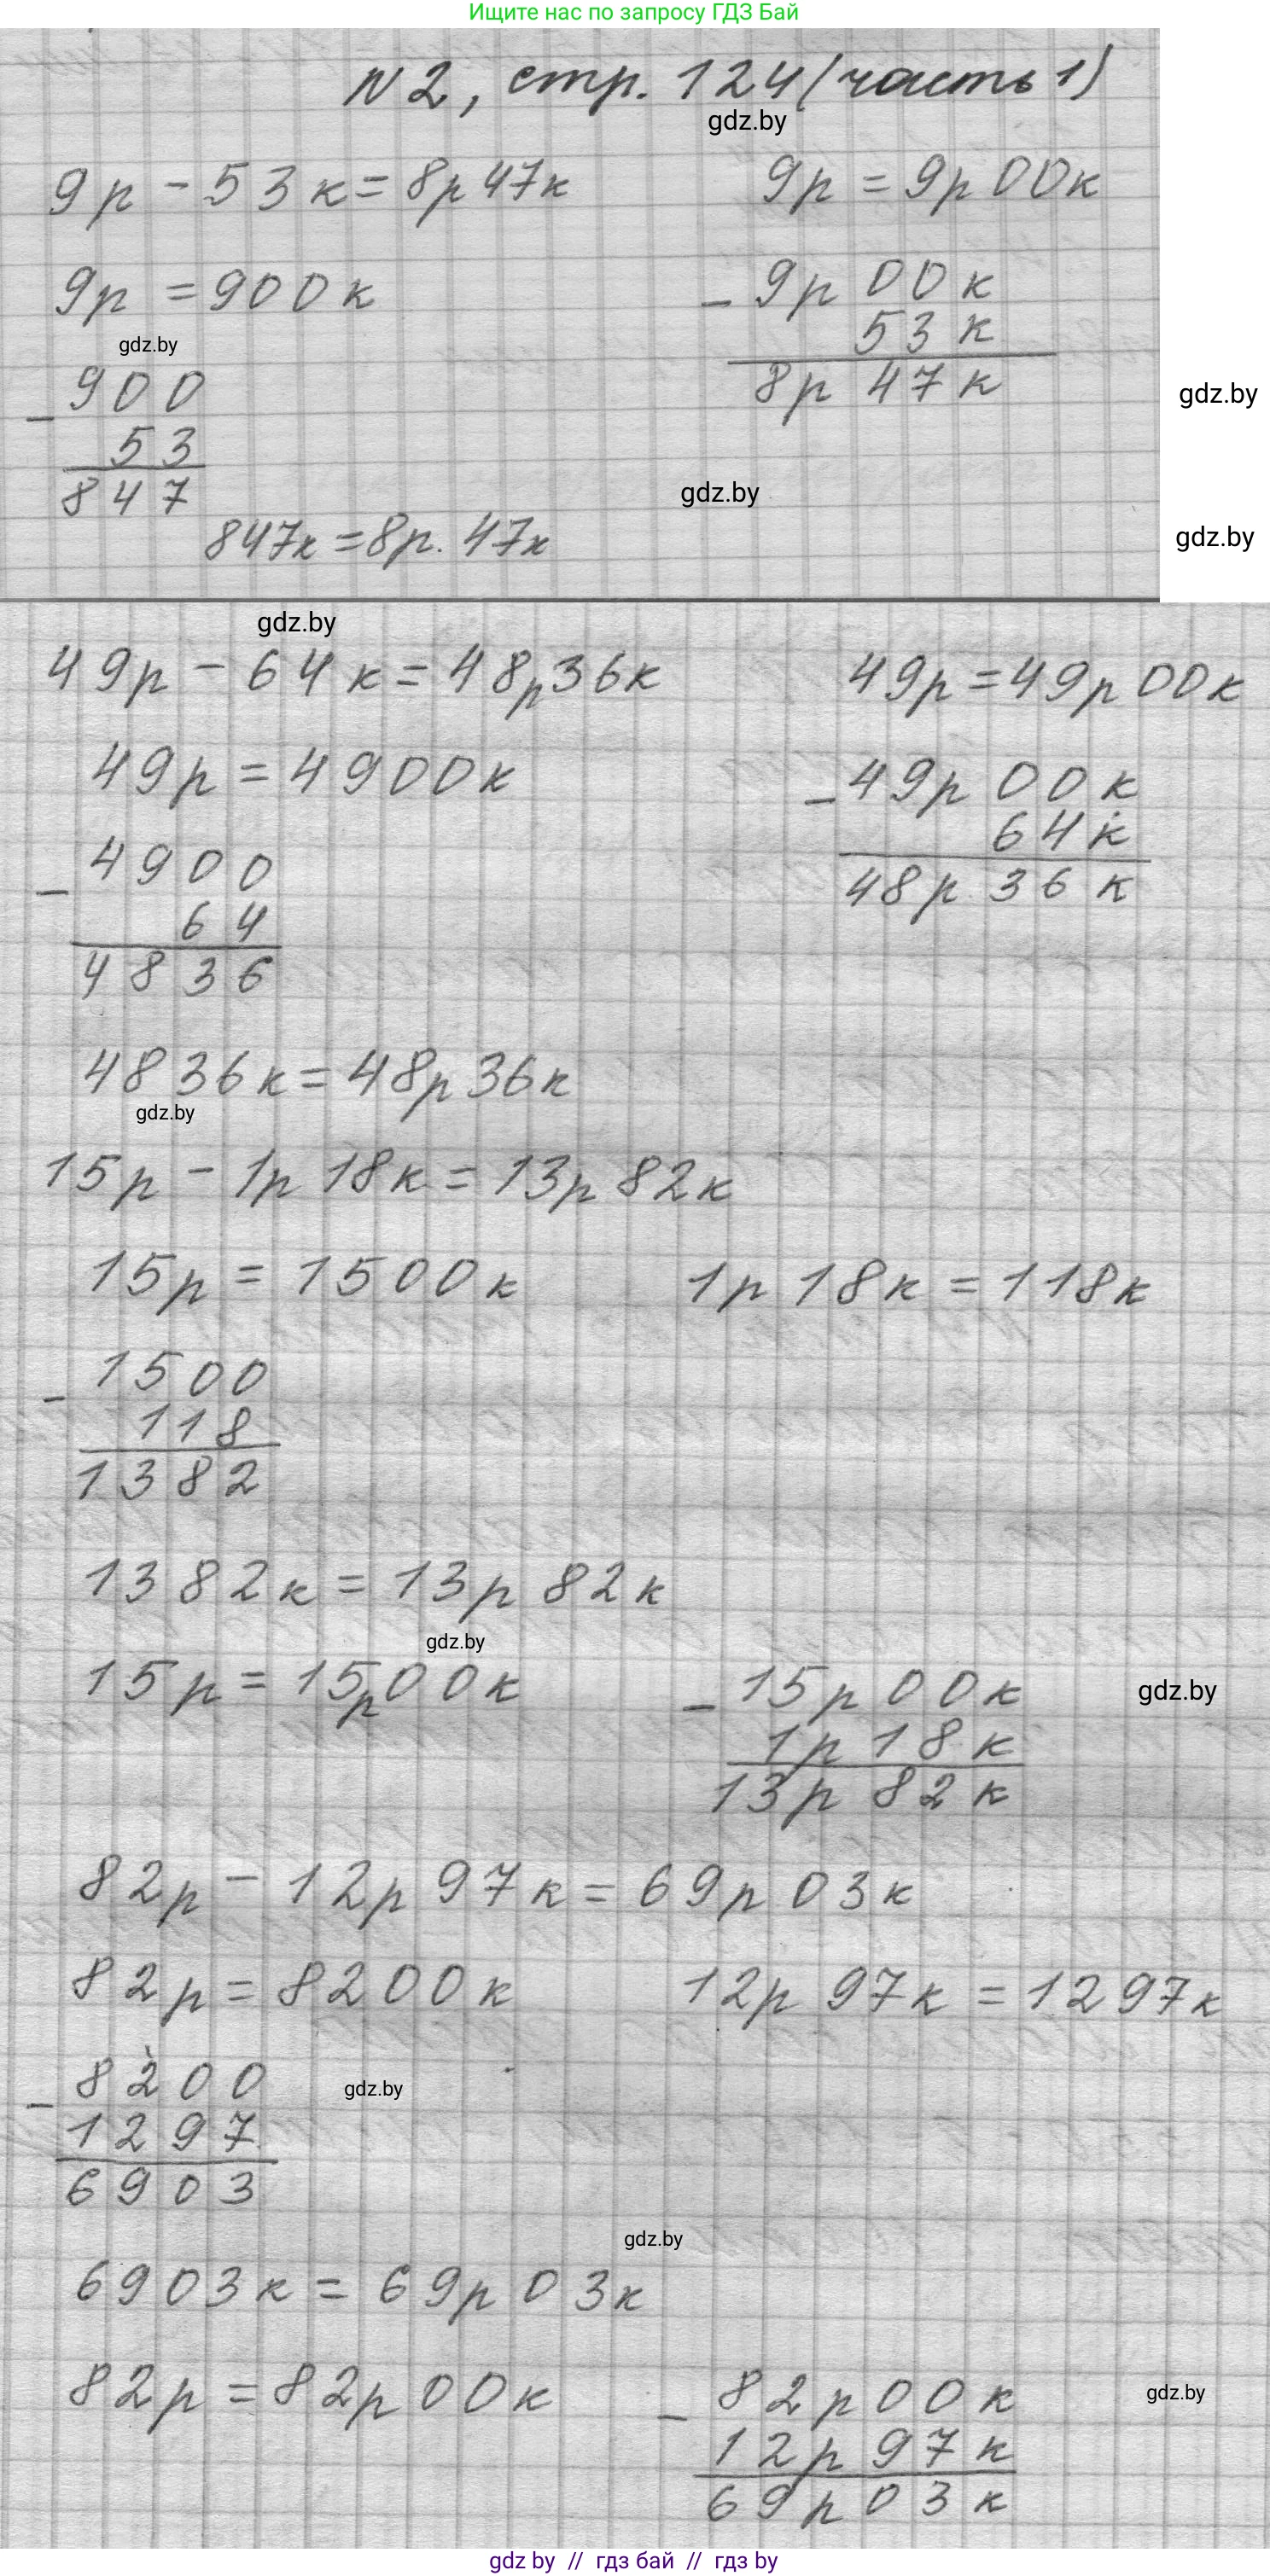 Ищите нас по запросу ГДЗ Бай
N2, стр. 124 (часть 1)
gdz.by
9р - 53к = 8р 47к
9р = 9р 00к
9р = 900к
- 9р 00к
53к
8р 47к
gdz.by
- 900
53
847
gdz.by
gdz.by
847к = 8р. 47к
gdz.by
gdz.by
49р - 64к = 48р36к
49р = 49р 00к
49р = 4900к
- 49р 00к
64к
48р 36к
- 4900
64
4836
4836к = 48р 36к
gdz.by
15р - 1р 18к = 13р 82к
15р = 1500к
1р 18к = 118к
- 1500
118
1382
1382к = 13р 82к
gdz.by
15р = 15р00к
- 15р 00к
1р 18к
13р 82к
gdz.by
82р - 12р 97к = 69р 03к
82р = 8200к
12р 97к = 1297к
- 8200
1297
6903
gdz.by
gdz.by
6903к = 69р 03к
82р = 82р 00к
- 82р 00к
12р 97к
69р 03к
gdz.by
gdz by // гдз бай // гдз by